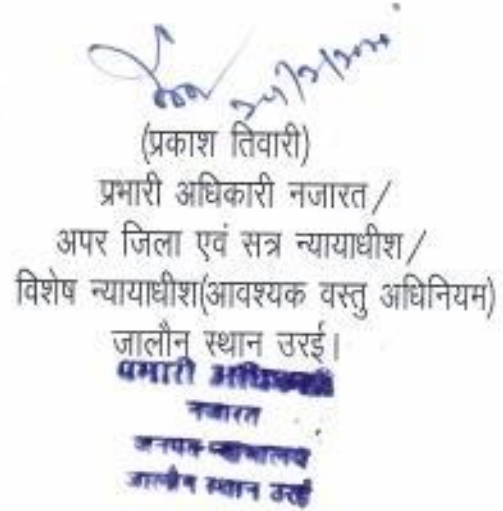 (प्रकाश तिवारी)
प्रभारी अधिकारी नजारत/
अपर जिला एवं सत्र न्यायाधीश/
विशेष न्यायाधीश(आवश्यक वस्तु अधिनियम)
जालौन स्थान उरई।
प्रभारी अधिकारी
नजारत
जनपद न्यायालय
जालौन स्थान उरई